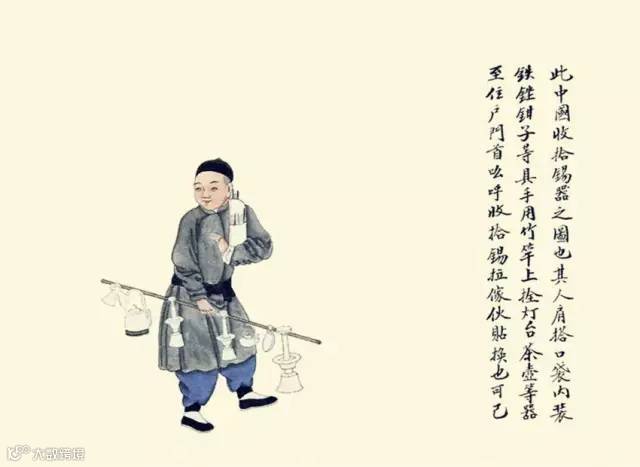 此中國收拾錫器之圖也其人肩搭口袋内裝
鉄銼鉗子等具手用竹竿上拴灯台茶壺等器
至住户門首吆呼收拾錫拉傢伙貼換也可已
大数跨境